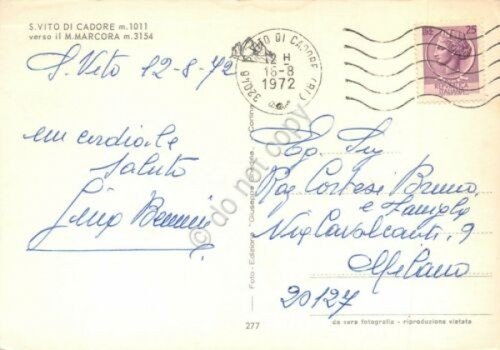 S. VITO DI CADORE m. 1011
verso il M. MARCORA m. 3154
S. Vito 12-8-72
un cordiale
saluto
S. VITO DI CADORE (BL)
12 H
16-8
1972
32046
25
Eg. Sig
Rag Cortesi Bruno
e Famiglia
Via Cavalcanti, 9
Milano
20127
Foto - Edizione "Giuseppe Ghedina" - Cortina
277
da vera fotografia - riproduzione vietata
do not copy